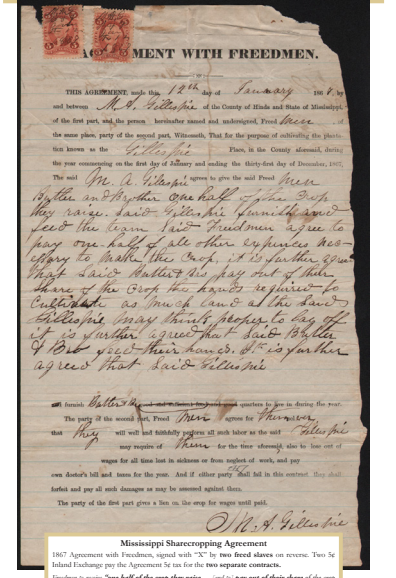 AGREEMENT WITH FREEDMEN.
THIS AGREEMENT, made this 12th day of January 186 , by
and between M. A. Gillespie of the County of Hinds and State of Mississippi,
of the first part, and the person hereinafter named and undersigned, Freed men of
the same place, party of the second part, Witnesseth, That for the purpose of cultivating the planta-
tion known as the Gillespie Place, in the County aforesaid, during
the year commencing on the first day of January and ending the thirty-first day of December, 1867,
The said M. A. Gillespie agrees to give the said Freed men
Butler and Brother one half of the crop
they raise. Said Gillespie furnish and
feed the team Said Freedmen agree to
pay one-half of all other expences nec-
essary to make the crop, it is further agree
that Said Butler & Brs pay out of their
Share of the Crop the hands required to
Cultivate as much land as the Said
Gillespie may think proper to lay off
it is further agreed that Said Butler
& Bro feed their hands. It is further
agreed that Said Gillespie
furnish Butler & Bro quarters to live in during the year.
The party of the second part, Freed men agrees
that they will well and faithfully perform all such labor as the said Gillespie
may require of them for the time aforesaid, also to lose out of
wages for all time lost in sickness or from neglect of work, and pay
own doctor's bill and taxes for the year. And if either party shall fail in this contract they shall
forfeit and pay all such damages as may be assessed against them.
The party of the first part gives a lien on the crop for wages until paid.
M. A. Gillespie
Mississippi Sharecropping Agreement
1867 Agreement with Freedmen, signed with "X" by two freed slaves on reverse. Two 5¢
Inland Exchange pay the Agreement 5¢ tax for the two separate contracts.